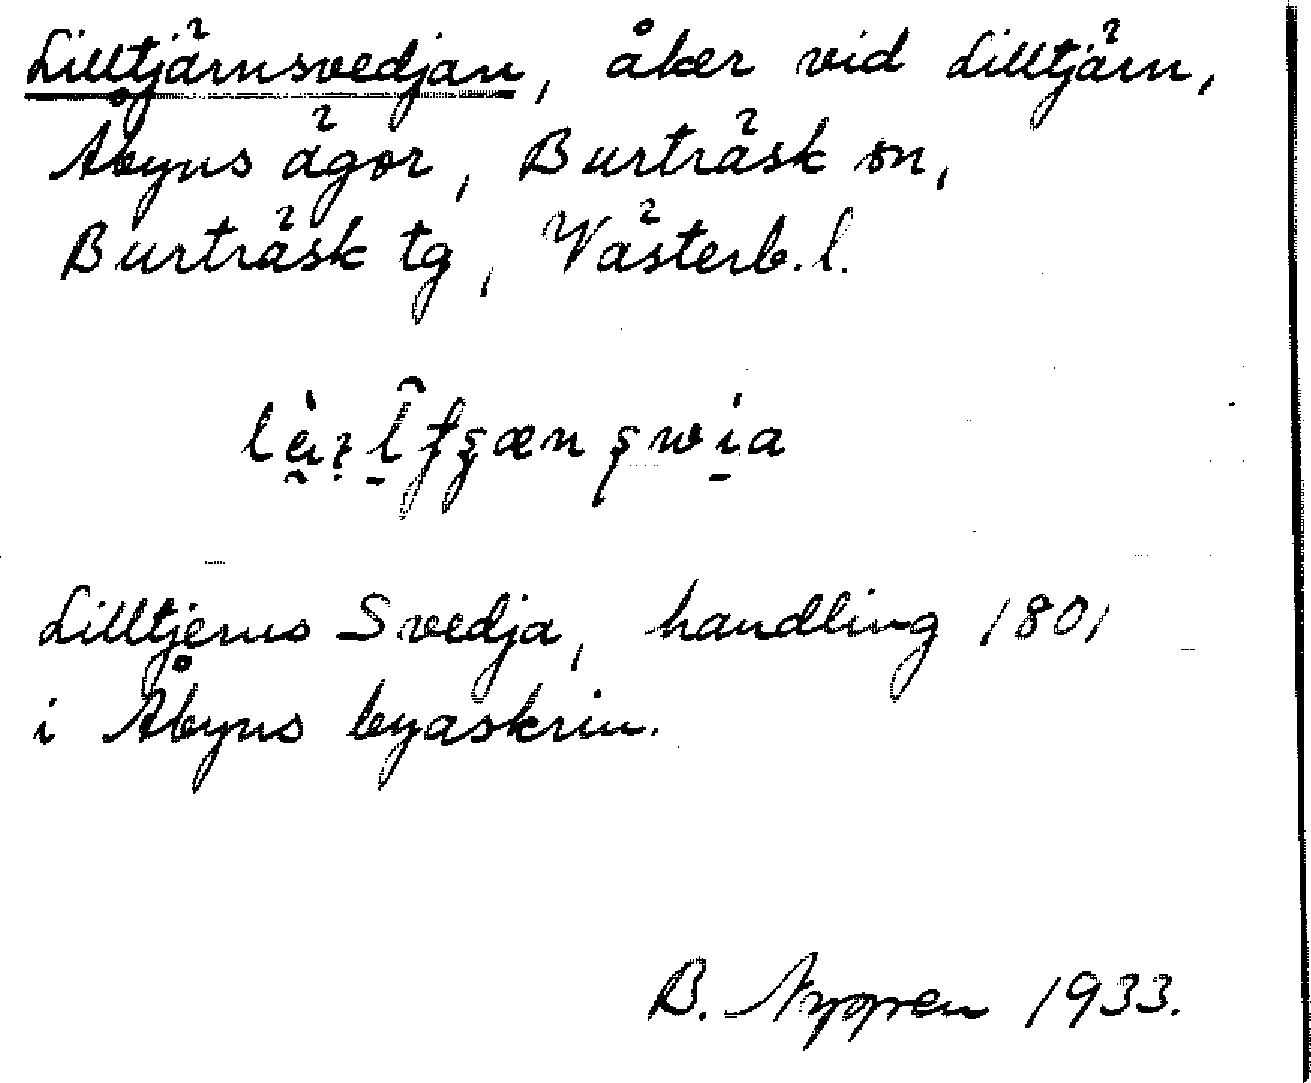 Lilltjärnsvedjan, åker vid Lilltjärn,
Åbyns ägor, Burträsk sn,
Burträsk tg, Västerb. l.
Lilltjerns Svedja, handling 1801
i Åbyns byaskrin.
B. 1933.